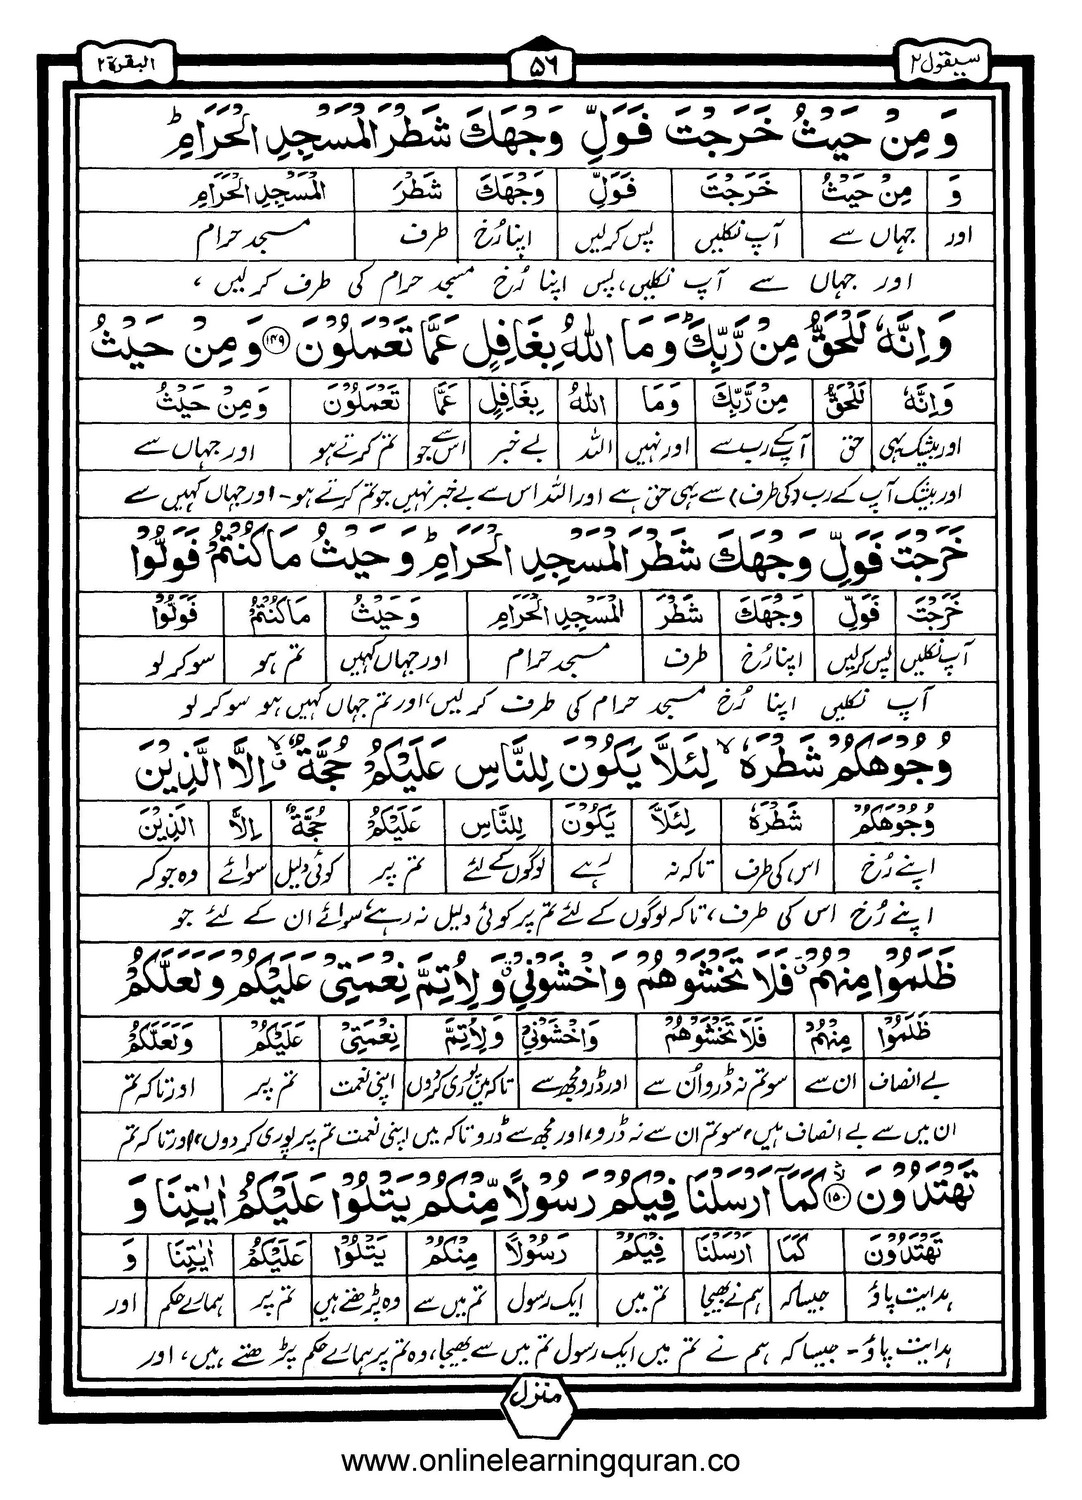 سيقول ٢
۵۶
البقرة ٢
وَ مِنْ حَيْثُ خَرَجْتَ فَوَلِّ وَجْهَكَ شَطْرَ الْمَسْجِدِ الْحَرَامِ ؕ
وَ مِنْ حَيْثُ خَرَجْتَ فَوَلِّ وَجْهَكَ شَطْرَ الْمَسْجِدِ الْحَرَامِ
اور جہاں سے آپ نکلیں پس کرلیں اپنا رُخ طرف مسجد حرام
اور جہاں سے آپ نکلیں، پس اپنا رُخ مسجد حرام کی طرف کرلیں،
وَ اِنَّهٗ لَلْحَقُّ مِنْ رَّبِّكَ ؕ وَ مَا اللّٰهُ بِغَافِلٍ عَمَّا تَعْمَلُوْنَ ﴿۱۴۹﴾ وَ مِنْ حَيْثُ
وَ اِنَّهٗ لَلْحَقُّ مِنْ رَّبِّكَ وَ مَا اللّٰهُ بِغَافِلٍ عَمَّا تَعْمَلُوْنَ وَ مِنْ حَيْثُ
اور بیشک یہی حق آپ کے رب سے اور نہیں اللہ بے خبر اس سے جو تم کرتے ہو اور جہاں سے
اور بیشک آپ کے رب (کی طرف) سے یہی حق ہے اور اللہ اس سے بے خبر نہیں جو تم کرتے ہو۔ اور جہاں کہیں سے
خَرَجْتَ فَوَلِّ وَجْهَكَ شَطْرَ الْمَسْجِدِ الْحَرَامِ ؕ وَ حَيْثُ مَا كُنْتُمْ فَوَلُّوْا
خَرَجْتَ فَوَلِّ وَجْهَكَ شَطْرَ الْمَسْجِدِ الْحَرَامِ وَ حَيْثُ مَا كُنْتُمْ فَوَلُّوْا
آپ نکلیں پس کرلیں اپنا رُخ طرف مسجد حرام اور جہاں کہیں تم ہو سو کر لو
آپ نکلیں اپنا رُخ مسجد حرام کی طرف کرلیں، اور تم جہاں کہیں ہو سو کر لو
وُجُوْهَكُمْ شَطْرَهٗ ۙ لِئَلَّا يَكُوْنَ لِلنَّاسِ عَلَيْكُمْ حُجَّةٌ ۙ اِلَّا الَّذِيْنَ
وُجُوْهَكُمْ شَطْرَهٗ لِئَلَّا يَكُوْنَ لِلنَّاسِ عَلَيْكُمْ حُجَّةٌ اِلَّا الَّذِيْنَ
اپنے رُخ اس کی طرف تاکہ نہ رہے لوگوں کے لئے تم پر کوئی دلیل سوائے وہ جو کہ
اپنے رُخ اس کی طرف، تاکہ لوگوں کے لئے تم پر کوئی دلیل نہ رہے، سوائے ان کے لئے جو
ظَلَمُوْا مِنْهُمْ ۗ فَلَا تَخْشَوْهُمْ وَ اخْشَوْنِيْ ۗ وَ لِاُتِمَّ نِعْمَتِيْ عَلَيْكُمْ وَ لَعَلَّكُمْ
ظَلَمُوْا مِنْهُمْ فَلَا تَخْشَوْهُمْ وَ اخْشَوْنِيْ وَ لِاُتِمَّ نِعْمَتِيْ عَلَيْكُمْ وَ لَعَلَّكُمْ
بے انصاف ان سے سو تم نہ ڈرو اُن سے اور ڈرو مجھ سے تاکہ میں پوری کردوں اپنی نعمت تم پر اور تاکہ تم
ان میں سے بے انصاف ہیں، سو تم ان سے نہ ڈرو، اور مجھ سے ڈرو تاکہ میں اپنی نعمت تم پر پوری کر دوں، اور تاکہ تم
تَهْتَدُوْنَ ﴿۱۵۰﴾ كَمَآ اَرْسَلْنَا فِيْكُمْ رَسُوْلًا مِّنْكُمْ يَتْلُوْا عَلَيْكُمْ اٰيٰتِنَا وَ
تَهْتَدُوْنَ كَمَا اَرْسَلْنَا فِيْكُمْ رَسُوْلًا مِنْكُمْ يَتْلُوْا عَلَيْكُمْ اٰيٰتِنَا وَ
ہدایت پاؤ جیسا کہ ہم نے بھیجا تم میں ایک رسول تم میں سے وہ پڑھتے ہیں تم پر ہمارے حکم اور
ہدایت پاؤ۔ جیسا کہ ہم نے تم میں ایک رسول تم میں سے بھیجا، وہ تم پر ہمارے حکم پڑھتے ہیں، اور
منزل
www.onlinelearningquran.co